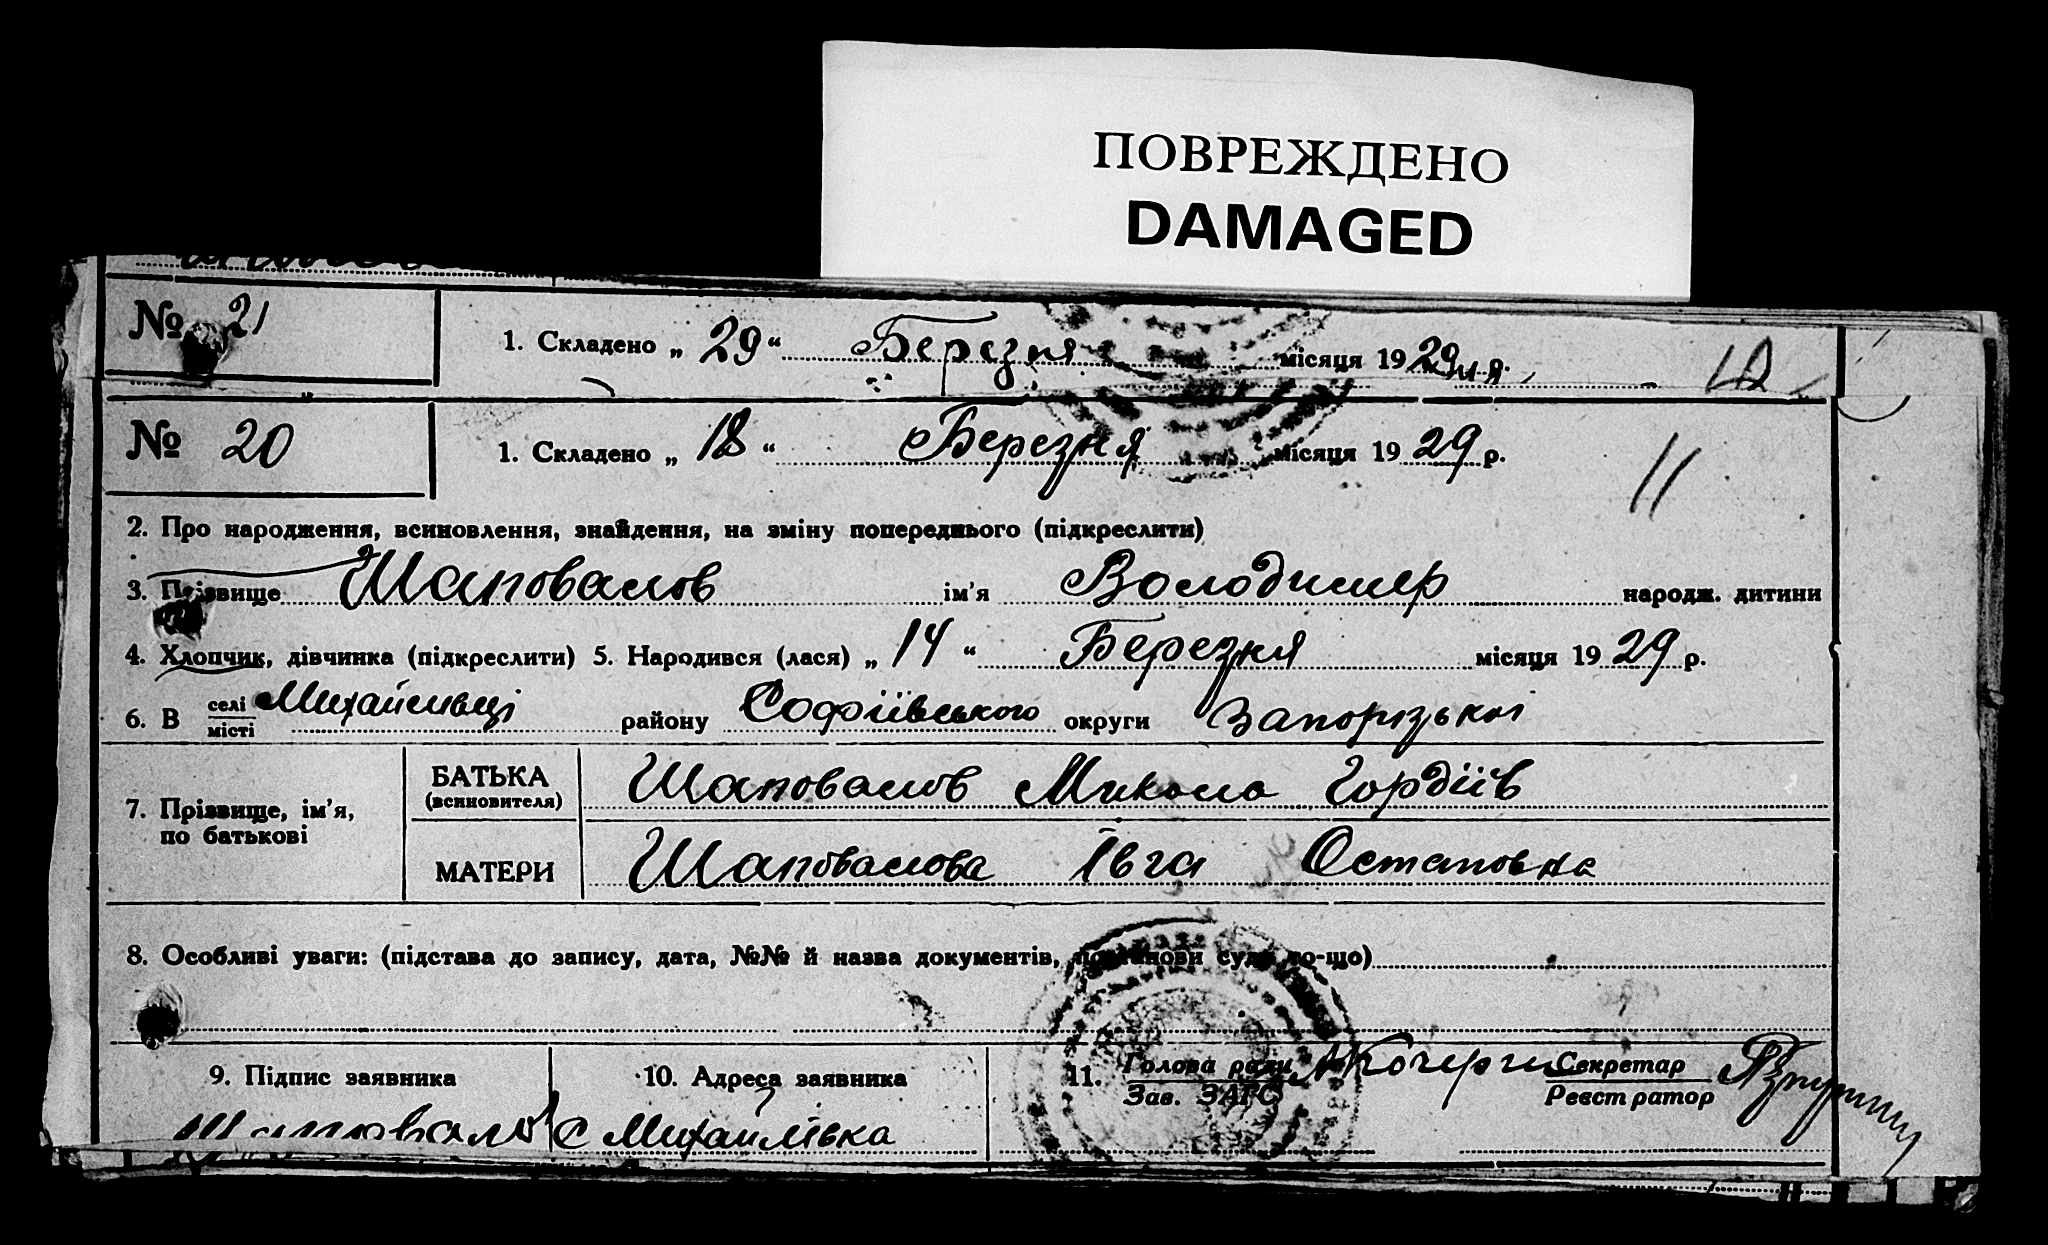 ПОВРЕЖДЕНО
DAMAGED
№ 21 1. Складено „ 29 “ Березня місяця 1929 р.
№ 20 1. Складено „ 18 “ Березня місяця 1929 р.
11
2. Про народження, всиновлення, знайдення, на зміну попереднього (підкреслити)
3. Прізвище Шаповалов ім'я Володимер народж. дитини
4. Хлопчик, дівчинка (підкреслити) 5. Народився (лася) „ 14 “ Березня місяця 1929 р.
6. В селі Михайливці району Софіївського округи Запорізької
місті
БАТЬКА Шаповалов Микола Гордіїв
(всиновителя)
7. Прізвище, ім'я,
по батькові
МАТЕРИ Шаповалова Івга Остаповна
8. Особливі уваги: (підстава до запису, дата, №№ й назва документів, постанови суду то-що)
9. Підпис заявника 10. Адреса заявника 11. Голова ради Секретар
Зав. ЗАГС Реєстратор
Шаповалов с Михайлівка